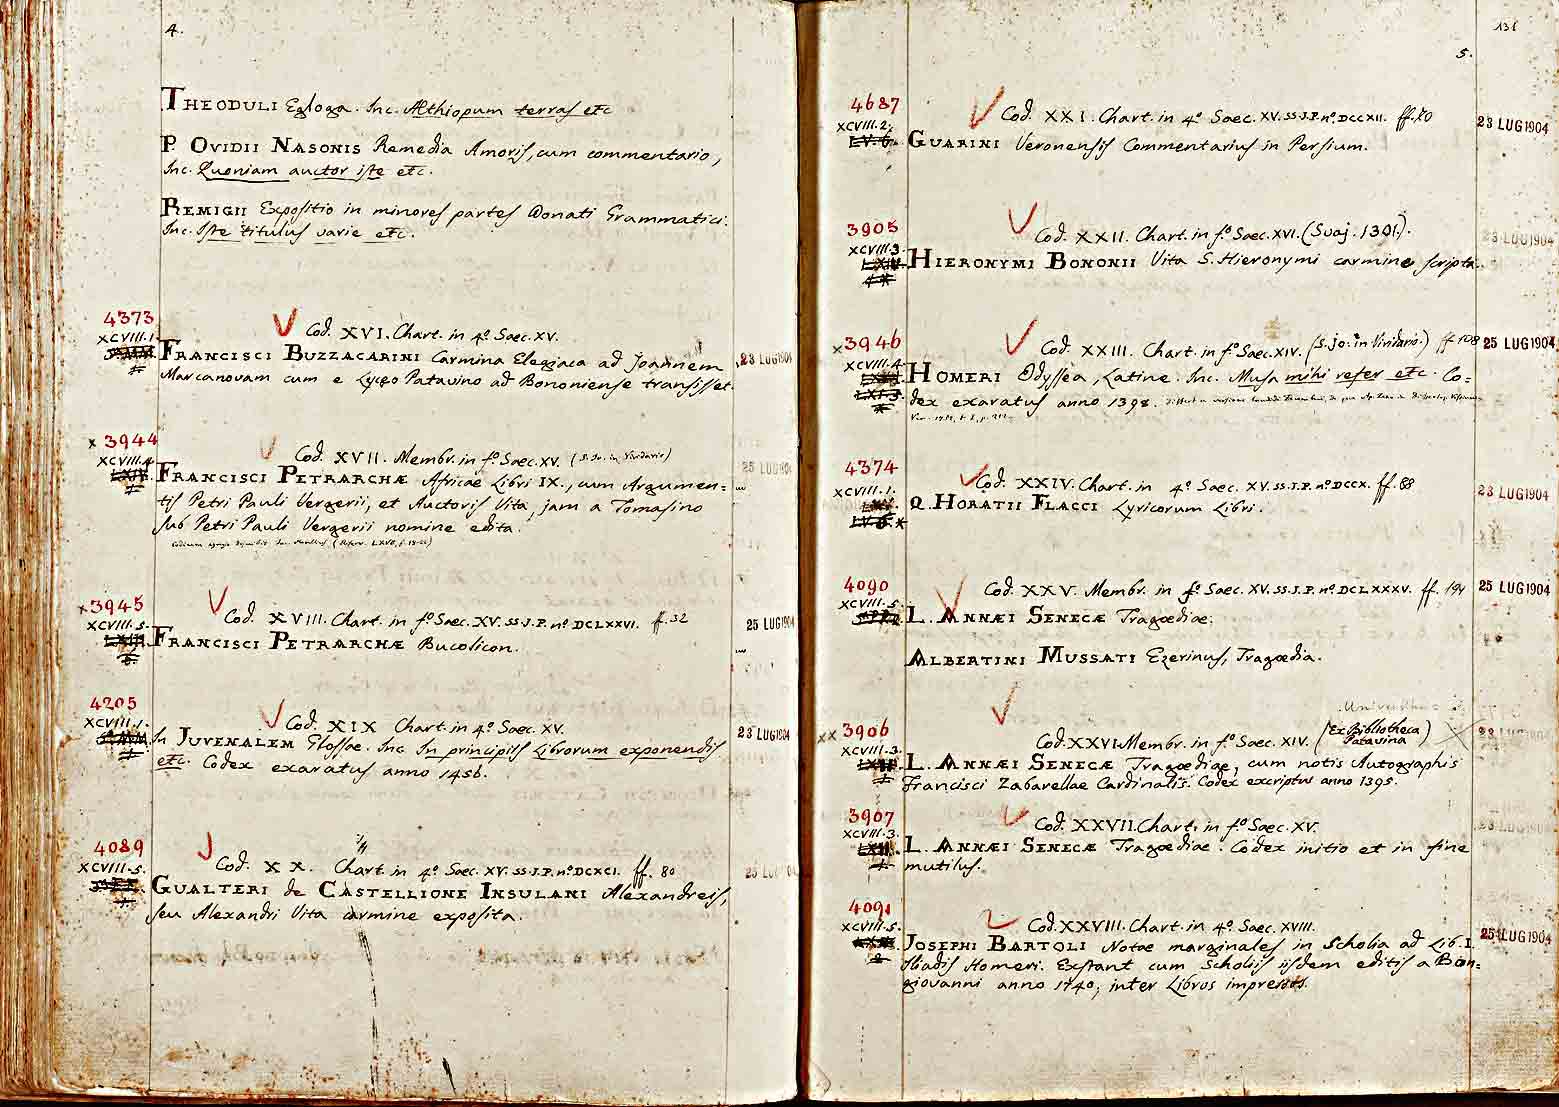 4.
THEODULI Egloga. Inc. Æthiopum terras etc
P. OVIDII NASONIS Remedia Amoris, cum commentario,
Inc. Quoniam auctor iste etc.
REMIGII Expositio in minores partes Donati Grammatici.
Inc. Iste titulus varie etc.
4373
XCVIII.1.
Cod. XVI. Chart. in 4º Saec. XV.
FRANCISCI BUZZACARINI Carmina Elegiaca ad Joannem
Marcanovam cum e Lycęo Patavino ad Bononiense transisset.
23 LUG 1904
x 3944
XCVIII.4.
Cod. XVII. Membr. in fº Saec. XV. (S. Jo. in Viridario)
FRANCISCI PETRARCHÆ Africae Libri IX., cum Argumen=
tis Petri Pauli Vergerii, et Auctoris Vita, jam a Tomasino
sub Petri Pauli Vergerii nomine edita.
25 LUG 1904
x 3945
XCVIII.5.
Cod. XVIII. Chart. in fº Saec. XV. SS. J. P. nº DCLXXVI. ff. 32
FRANCISCI PETRARCHÆ Bucolicon.
25 LUG 1904
4205
XCVIII.1.
Cod. XIX Chart. in 4º Saec. XV.
In JUVENALEM Glossae. Inc. In principiis Librorum exponendis
etc. Codex exaratus anno 1456.
23 LUG 1904
4089
XCVIII.5.
Cod. XX. Chart. in 4º Saec. XV. SS. J. P. nº DCXCI. ff. 80
GUALTERI de CASTELLIONE INSULANI Alexandreis,
seu Alexandri Vita carmine exposita.
25 LUG 1904
131
5.
4687
XCVIII.2.
Cod. XXI. Chart. in 4º Saec. XV. SS. J. P. nº DCCXII. ff. 70
GUARINI Veronensis Commentarius in Persium.
23 LUG 1904
3905
XCVIII.3.
Cod. XXII. Chart. in fº Saec. XVI. (Svaj. 1301.).
HIERONYMI BONONII Vita S. Hieronymi carmine scripta.
23 LUG 1904
x 3946
XCVIII.4.
Cod. XXIII. Chart. in fº Saec. XIV. (S. Jo. in Viridario.) ff 108
HOMERI Odyssea, Latine. Inc. Musa mihi refer etc. Co=
dex exaratus anno 1398.
25 LUG 1904
4374
XCVIII.1.
Cod. XXIV. Chart. in 4º Saec. XV. SS. J. P. nº DCCX. ff. 88
Q. HORATII FLACCI Lyricorum Libri.
23 LUG 1904
4090
XCVIII.5.
Cod. XXV. Membr. in fº Saec. XV. SS. J. P. nº DCLXXXV. ff. 194
L. ANNÆI SENECÆ Tragœdiae.
ALBERTINI MUSSATI Ezerinus, Tragœdia.
25 LUG 1904
xx 3906
XCVIII.3.
Cod. XXVI. Membr. in fº Saec. XIV. (Ex Bibliotheca
Patavina)
L. ANNÆI SENECÆ Tragœdiae, cum notis Autographis
Francisci Zabarellae Cardinalis. Codex excriptus anno 1395.
23 LUG 1904
3907
XCVIII.3.
Cod. XXVII. Chart. in fº Saec. XV.
L. ANNÆI SENECÆ Tragœdiae. Codex initio et in fine
mutilus.
23 LUG 1904
4091
XCVIII.5.
Cod. XXVIII. Chart. in 4º Saec. XVIII.
JOSEPHI BARTOLI Notae marginales in Scholia ad Lib. I.
Iliadis Homeri. Exstant cum Scholiis iisdem editis a Bon=
giovanni anno 1740, inter Libros impressos.
25 LUG 1904